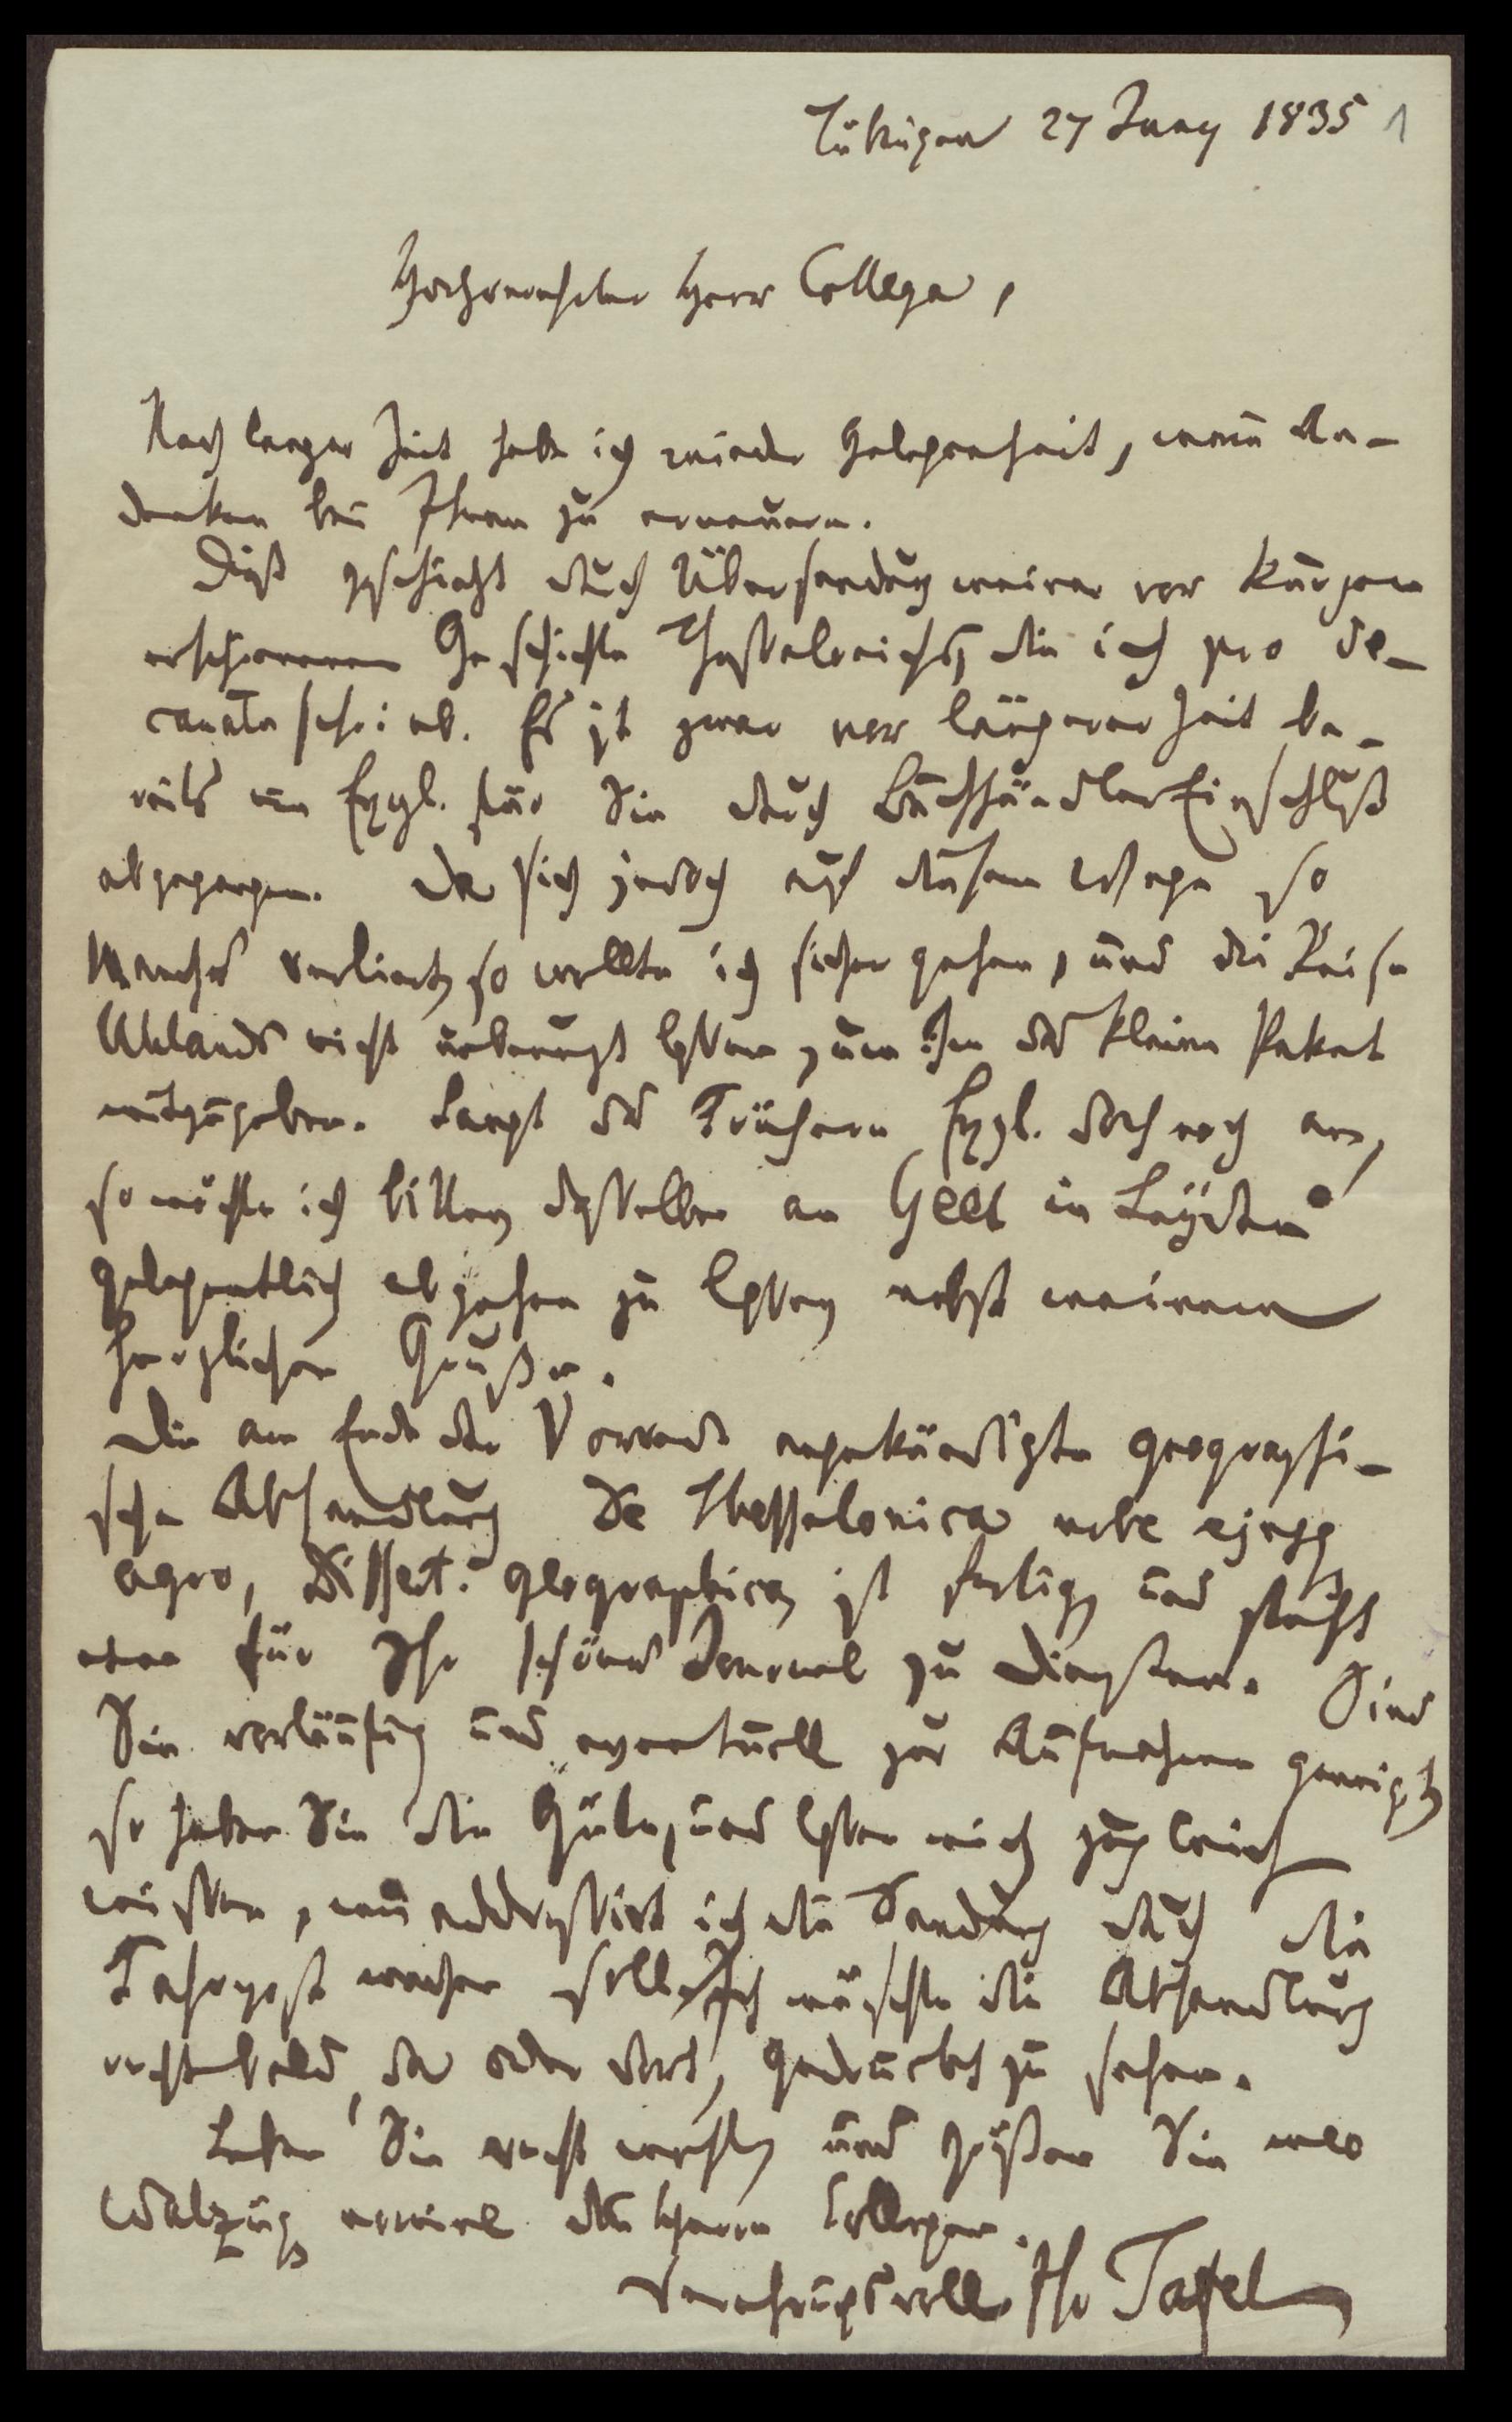 Tübingen 27 Juny 1835 1
Hochverehrter Herr College,
Nach langer Zeit habe ich wieder Gelegenheit, mein An-
denken bei Ihnen zu erneuern.
Diß geschieht durch Übersendung meiner vor Kurzem
erschienenen Geschichte Thessalonichs, die ich pro de-
canatu schrieb. Es ist zwar vor längerer Zeit be-
reits ein Expl. für Sie durch BuchhändlerEinschluß
abgegangen. Da sich jedoch auf diesem Wege so
Manches verliert, so wollte ich sicher gehen, und die Reise
Uhlands nicht unbenuzt lassen, um Ihm das kleine Paket
mitzugeben. Langt das Frühere Expl. doch noch an,
so möchte ich bitten, dasselbe an Geel in Leyden
gelegentlich abgehen zu lassen, nebst meinem
herzlichen Gruße.
Die am Ende der Vorrede angekündigte geographi-
sche Abhandlung De Thessalonica urbe ejusq
agro, Dissert. geographica, ist fertig, und steht
etwa für Ihr schönes Journal zu Diensten. Sind
Sie vorläufig und eventuell zur Aufnahme geneigt,
so haben Sie die Güte, und lassen mich zugleich
wissen, wie addressirt ich die Sendung durch die
Fahrpost machen solle. Ich wünschte die Abhandlung
recht bald, da oder dort, gedruckt zu sehen.
Leben Sie recht wohl, und grüßen Sie mir
die Herren Collegen.
Verehrungsvoll Ihr Tafel